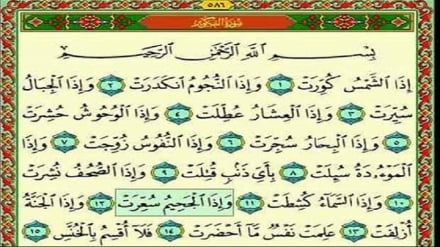 ٥٨٦
سُورَةُ التَّكْوِيرِ
بِسْمِ اللَّهِ الرَّحْمَٰنِ الرَّحِيمِ
إِذَا الشَّمْسُ كُوِّرَتْ ١ وَإِذَا النُّجُومُ انكَدَرَتْ ٢ وَإِذَا الْجِبَالُ
سُيِّرَتْ ٣ وَإِذَا الْعِشَارُ عُطِّلَتْ ٤ وَإِذَا الْوُحُوشُ حُشِرَتْ
٥ وَإِذَا الْبِحَارُ سُجِّرَتْ ٦ وَإِذَا النُّفُوسُ زُوِّجَتْ ٧ وَإِذَا
الْمَوْءُۥدَةُ سُئِلَتْ ٨ بِأَيِّ ذَنۢبٍ قُتِلَتْ ٩ وَإِذَا الصُّحُفُ نُشِرَتْ
١٠ وَإِذَا السَّمَاءُ كُشِطَتْ ١١ وَإِذَا الْجَحِيمُ سُعِّرَتْ ١٢ وَإِذَا الْجَنَّةُ
أُزْلِفَتْ ١٣ عَلِمَتْ نَفْسٌ مَّا أَحْضَرَتْ ١٤ فَلَا أُقْسِمُ بِالْخُنَّسِ ١٥